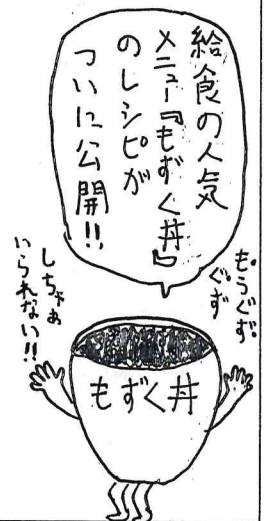 給食の人気
メニュー『もずく丼』
のレシピが
ついに公開!!
もうぐず
ぐず
しちゃぁ
いられない!!
もずく丼